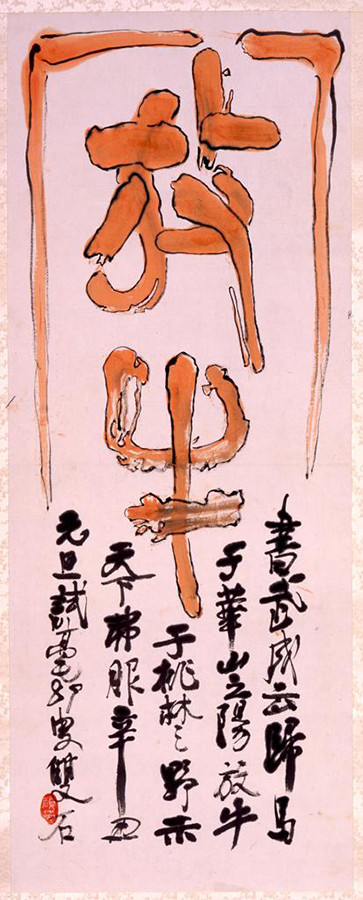 放牛
書武成云歸馬
于華山之陽放牛
于桃林之野示
天下弗服辛丑
元旦試毫卯叟雙石